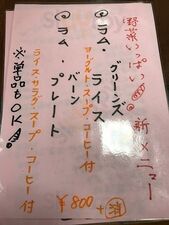 野菜いっぱい 新メニュー
◎ヨム・グリーンズライス
ヨーグルト・スープ・コーヒー付
◎ヨム・バーンプレート
ライス・サラダ・スープ・コーヒー付
¥800+消
※単品もOK!